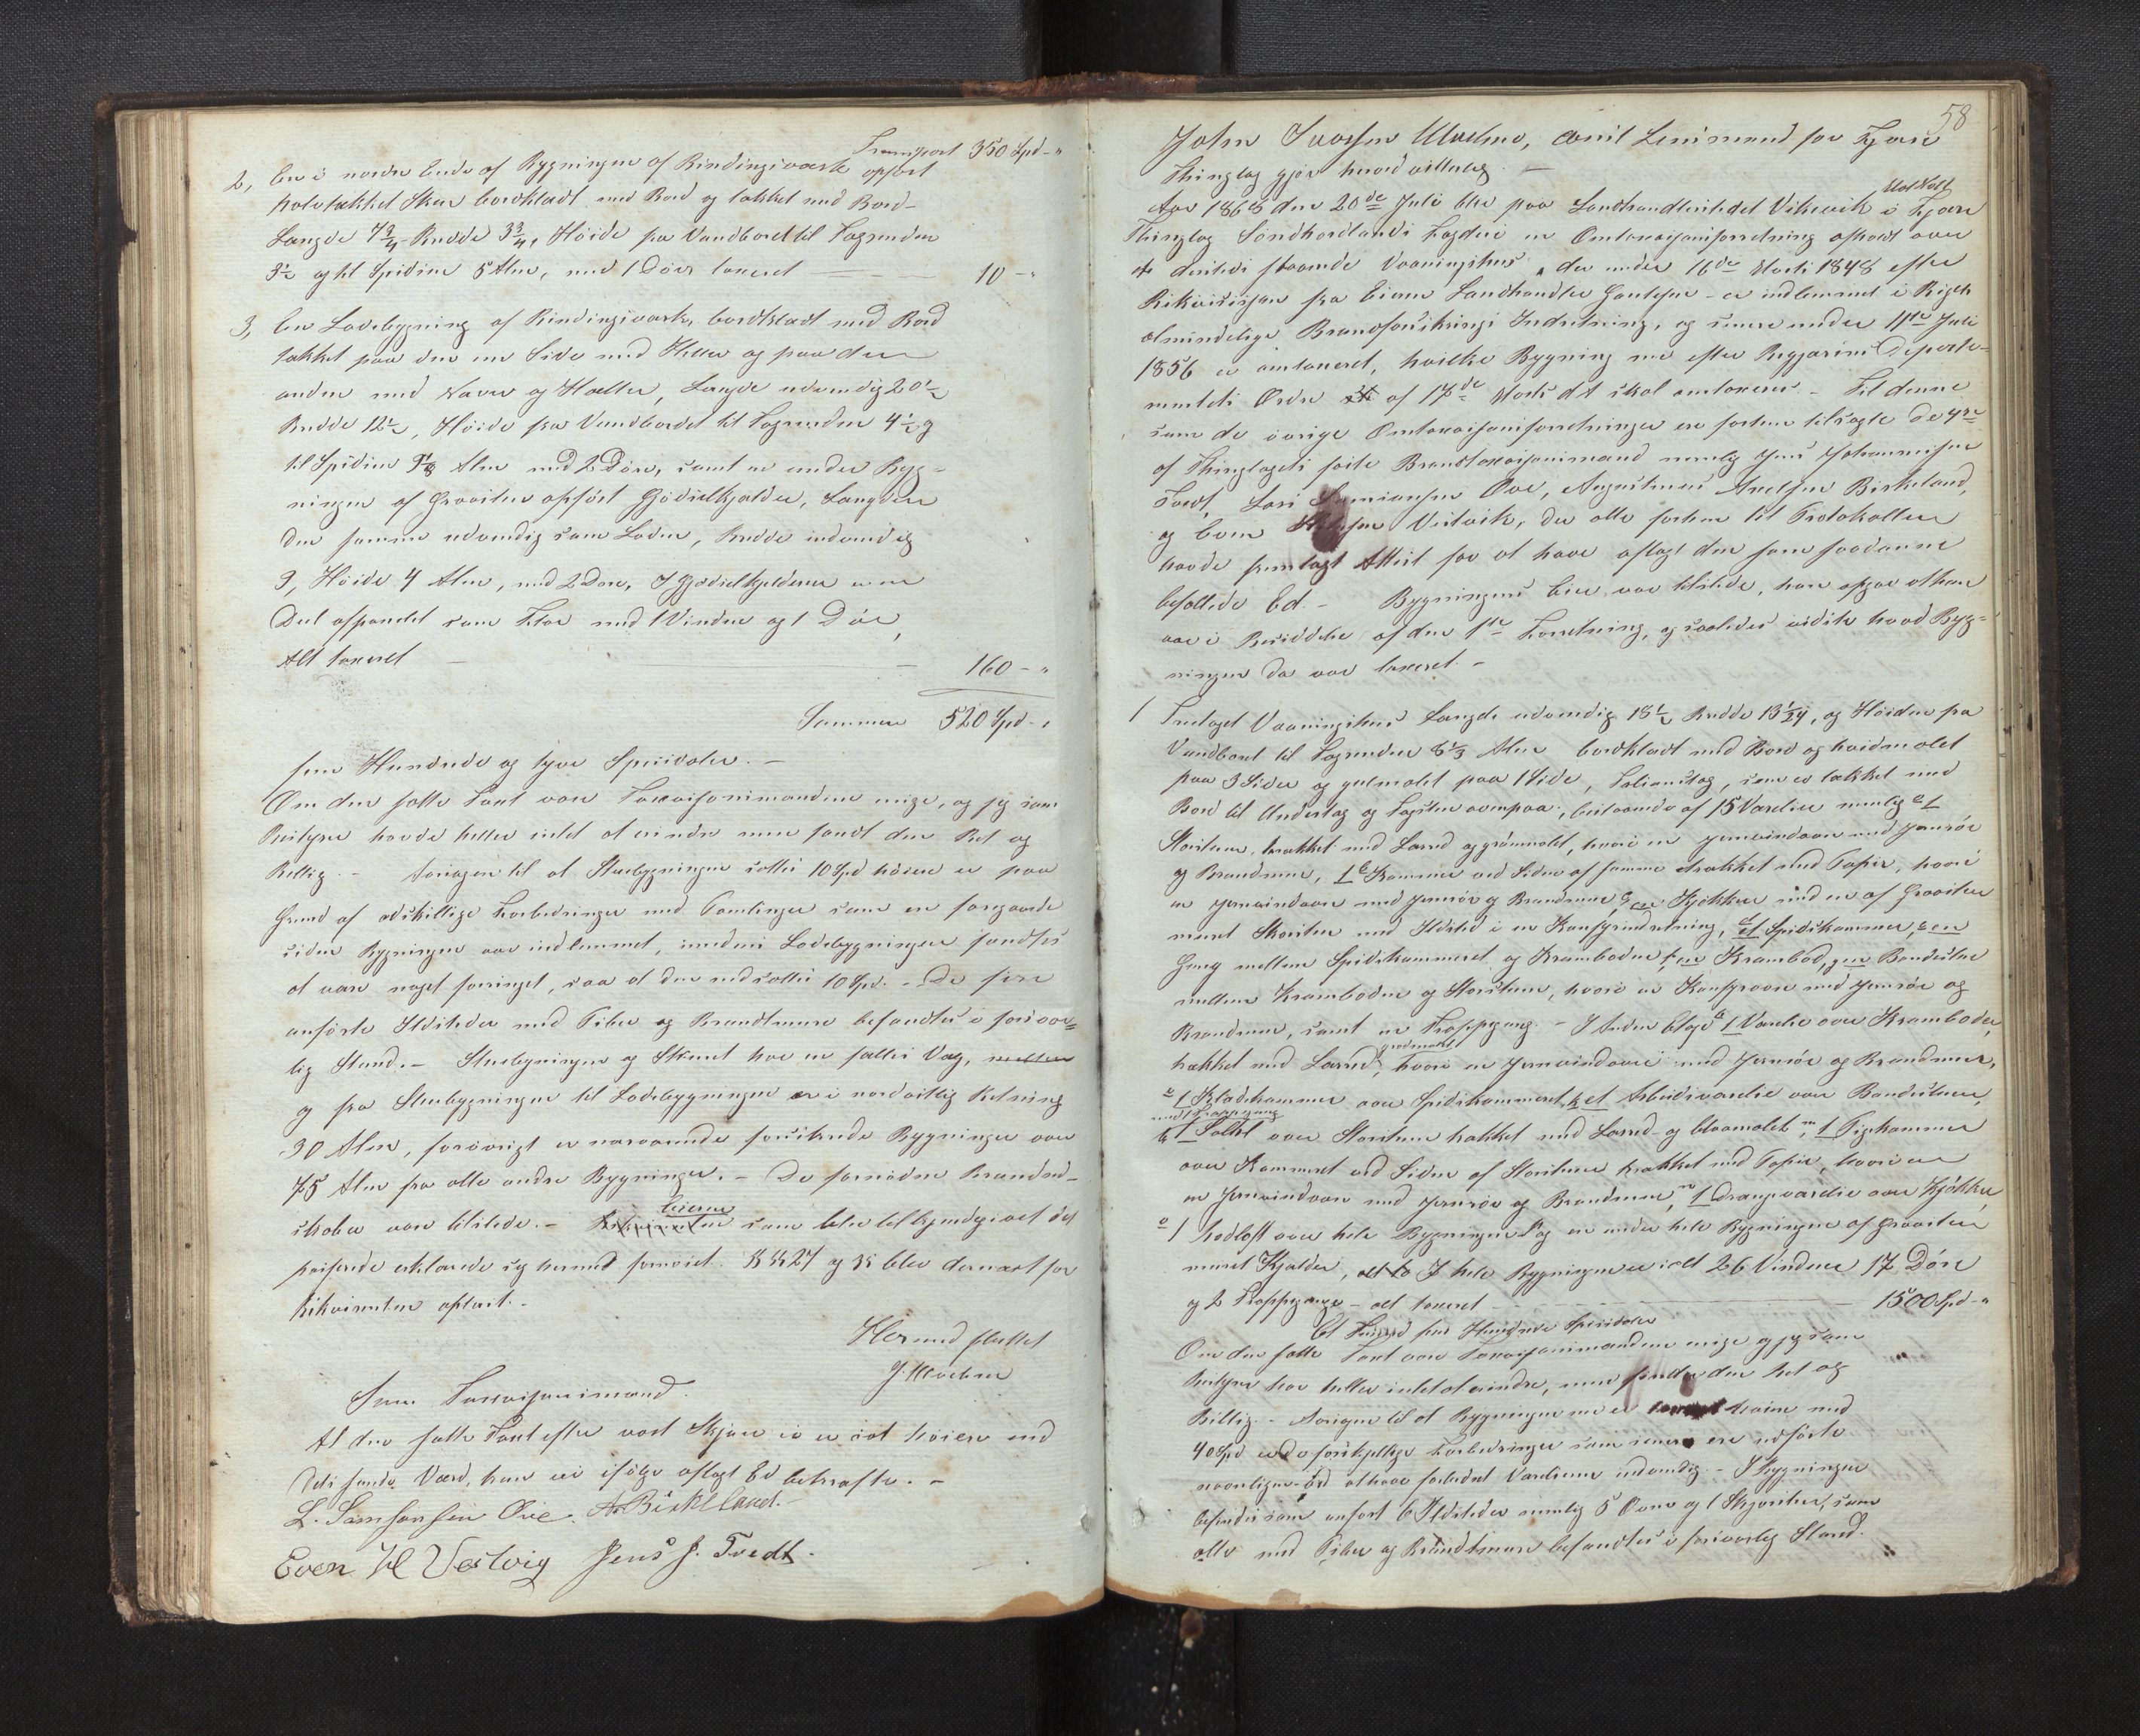 Transport 350 Spd - "
2, En i nordre Ende af Bygningen af Bindingsværk opført
halvtækket Skur bordklædt med Bord og tækket med Bord -
Længde 7 3/4 Bredde 3 3/4, Høide fra Vandbordet til Tagrenden
3 1/2 og til Spidsen 5 Alen, med 1 Dør taxeret — 10 - "
3, En Ladebygning af Bindingsværk, bordklædt med Bord
tækket paa den ene Side med Heller og paa den
anden med Næver og Heller, Længde udvendig 20 1/2
Bredde 12 1/2, Høide fra Vandbordet til Tagrenden 4 1/2 og
til Spidsen 9 1/8 Alen med 2 Døre, samt en under Byg-
ningen af Graasten opført Gjødselkjælder, Længden
den samme udvendig som Laden, Bredde indvendig
9, Høide 4 Alen, med 2 Døre, I Gjødselkjelderen er en
Deel afpandet som Flor med 1 Vindue og 1 Dør,
Alt taxeret — 160 - "
Summa 520 Spd - "
fem Hundrede og tyve Speciedaler. -
Om den satte Taxt vare Taxasjonsmændene enige, og jeg som
Bestyrer havde heller intet at erindre men fandt den Ret og
Billig. - Aarsagen til at Stuebygningen sattes 10 Spd høiere er paa
Grund af adskillige Forbedringer med Tømlinger som er foregaaede
siden Bygningen var indlemmet, imedens Ladebygningen fandtes
at være noget forringet, saa at den nedsattes 10 Spd. - De fore
anførte Ildsteder med Piber og Brandmure befandtes i forsvar=
lig Stand. - Stuebygningen og Skuret har en fælles Væg,
og fra Stuebygningen til Ladebygningen er i nordøstlig Retning
30 Alen, forøvrigt er nærværende forsikrede Bygninger over
75 Alen fra alle andre Bygninger. - De fornødne Brandred-
skaber vare tilstede. - Eieren som blev tilkjendegivet det
passerede erklærede sig hermed fornøiet. §§ 27 og 35 blev dernæst for
Rekvirenten oplæst. -
Hermed sluttet
J. Maelen
Som Taxasjonsmænd.
At den satte Taxt efter vort Skjøn ei er sat høiere end
dets sande Værd, kan vi ifølge aflagt Ed bekræfte. -
L. Samsonsen Øvre. A. Birkeland. -
Even H Vestvig Jens J. Tvedt.
58
John Maelen, const Lensmand for Fjære
Thinglag gjør herved vitterlig. -
Aar 1868 den 20de Juli blev paa Landhandlerstedet Vikevik i Fjære
Thinglag Søndhordlands Fogderi en Omtaxasjonsforretning afholdt over
et dersteds staaende Vaaningshus, der under 16de Marts 1848 efter
Rekvisisjon fra Eieren Landhandler Gautesen - er indlemmet i Rigets
almindelige Brandforsikrings Indretning, og senere under 11te Juli
1856 er omtaxeret, hvilke Bygning nu efter Regjærins Departe-
mentets Ordre af 17de Marts d A skal omtaxeres - Til denne
som de øvrige Omtaxasjonsforretninger ere forhen tilsagte de 4re
af Thinglagets faste Brandtaxasjonsmænd nemlig Jens Johannesen
Tvedt, Lars Samsonsen Øvre, Augustinus Axelsen Birkeland,
og Even Vestvik, der alle forhen til Protokollen
havde fremlagt Attest for at have aflagt den som saadanne
befallede Ed. - Bygningens Eier var tilstede, han opgav at han
var i Besiddelse af den 1ste Forretning, og saaledes vidste hvad Byg=
ningen da var taxeret. -
1 Toetaget Vaaningshus Længde udvendig 18 1/2 Bredde 13 1/24, og Høiden fra
Vandbord til Tagrenden 8 1/3 Alen bordklædt med Bord og hvidmalet
paa 3 Sider og guulmalet paa 1 Side, Italienstag, som er tækket med
Bord til Undertag og Tagsten ovenpaa, bestaaende af 15 Værelser nemlig a 1
Storstue, trækket med Lærred og grønmalet, hvori en Jernvindovn med Jernrør
og Brandmur, 1 b Kammer ved Siden af samme trækket med Papir, hvori
en Jernvindovn med Jernrør og Brandmur, c en Kjøkken med en af Graasten
muret Skorsten med Ildsted i en Kamfyrindretning, d et Spidskammer, e en
Gang mellem Spidskammeret og Kramboden f, en Krambod, g en Bondestue
mellem Kramboden og Storstuen, hvori en Kamfyrovn med Jernrør og
Brandmur, samt en Trappegang. - I Anden Etage h 1 Værelse over Kramboden,
trækket med Lærred, hvori en Jernvindovn med Jernrør og Brandmur,
i 1 Klædekammer over Spidskammeret, k et Arbeidsværelse over Bondestuen,
med 1 Trappegang
l 1 Sallel over Storstuen trækket med Lærred og blaamalet, m 1 Pigekammer
over Kammeret ved Siden af Storstuen trækket med Papir, hvori er
en Jernvindovn med Jernrør og Brandmur, n 1 Drengeværelse over Kjøkken,
o 1 Mørkloft over hele Bygningen og en under hele Bygningen af Graasten
muret Kjælder, I hele Bygningen er i alt 26 Vinduer 17 Døre
og 2 Trappegange - alt taxeret — 1500 Spd - "
Et Tusend fem Hundrede Speciedaler
Om den satte Taxt vare Taxasjonsmændene enige og jeg som
Bestyrer har heller intet at erindre, men fandt den Ret og
Billig. - Aarsagen til at Bygningen nu er høiere med
40 Spd er de forskjellige Forbedringer som senere ere udførte
navnligen ved at have forbedret Værelserne indvendig - I Bygningen
befindes som anført 6 Ildsteder nemlig 5 Ovne og 1 Skjorsten, som
alle med Piber og Brandtmure befandtes i forsvarlig Stand.